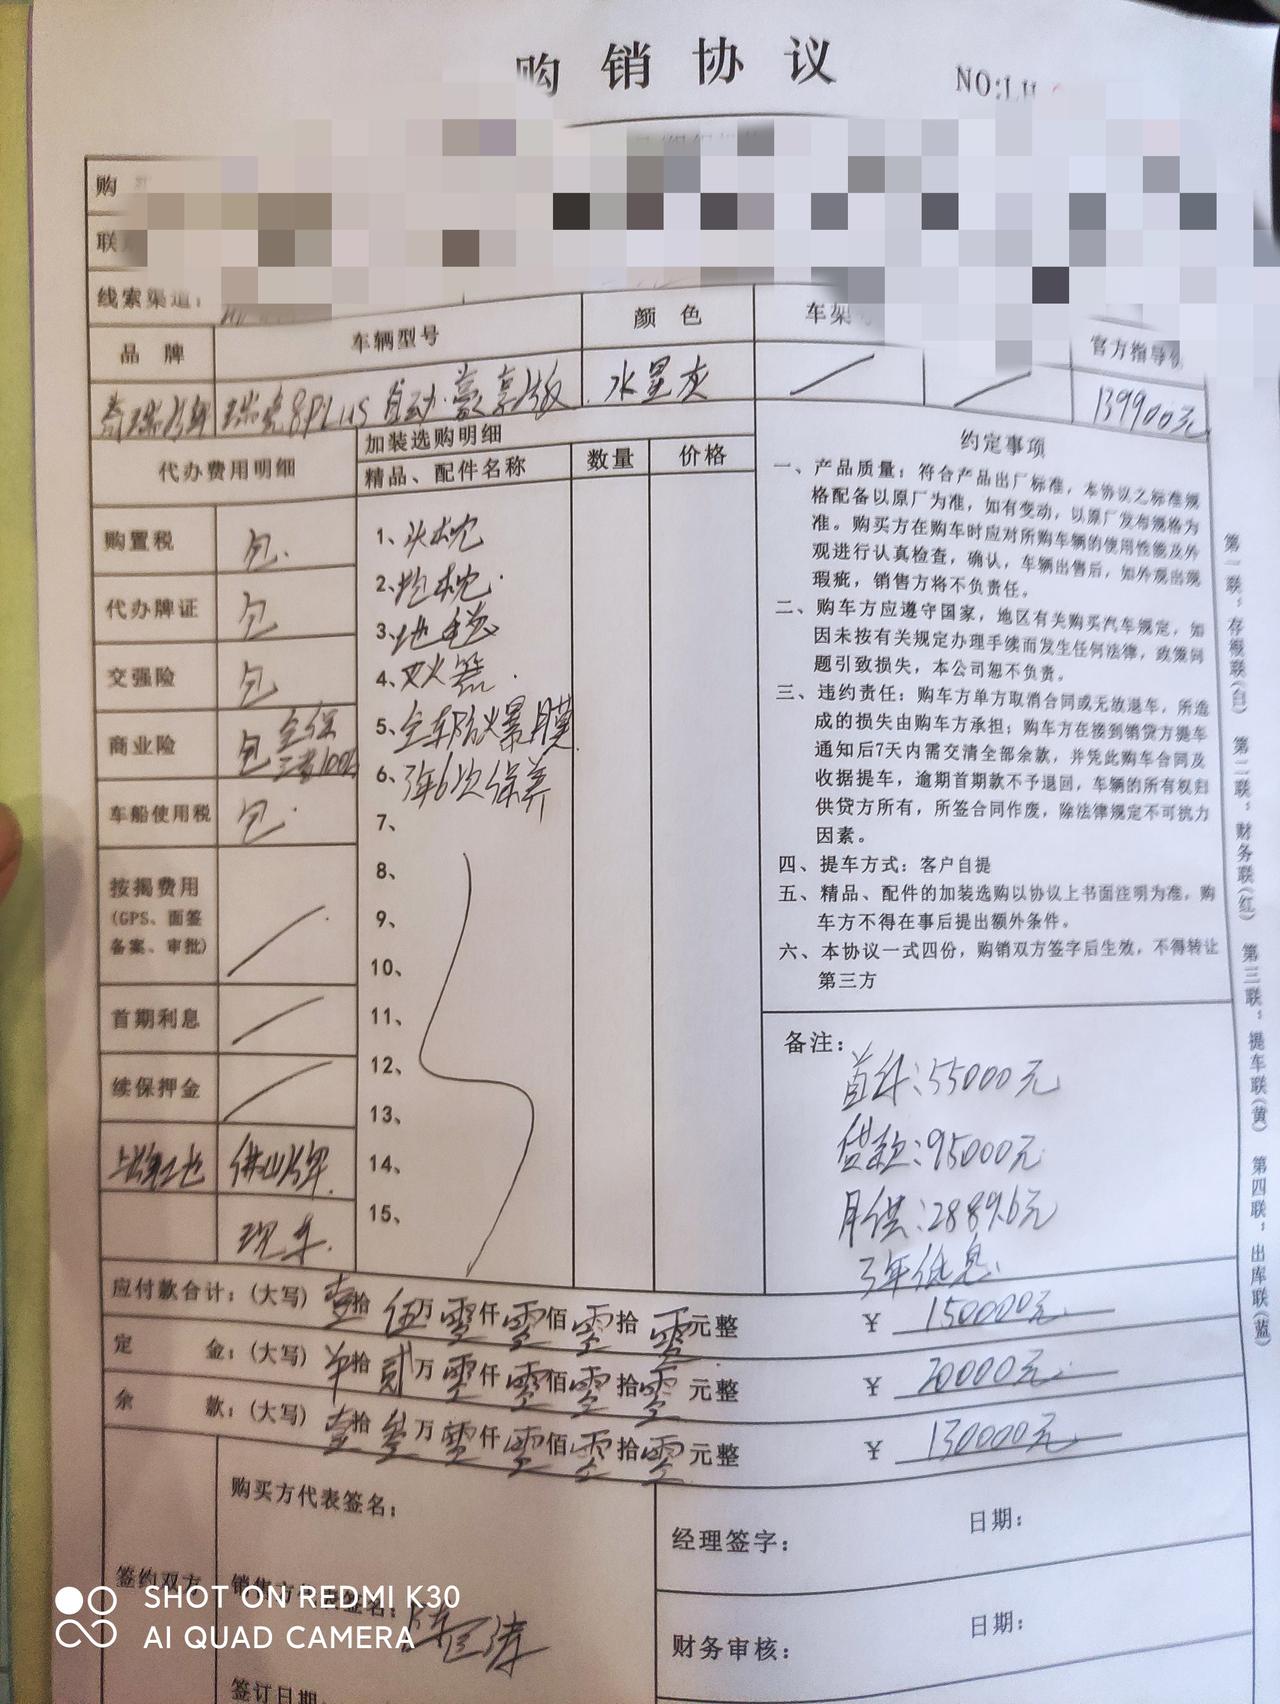 购销协议
NO:LH
购
联
线索渠道：
品 牌 车辆型号 颜 色 车架 官方指导价
奇瑞汽车 瑞虎8PLUS 自动·豪享版 水星灰 139900元
代办费用明细
加装选购明细
精品、配件名称 数量 价格
购置税 包.
代办牌证 包
交强险 包
商业险 包 全保 三者100
车船使用税 包.
按揭费用
(GPS、面签
备案、审批)
首期利息
续保押金
上牌地 佛山
现车.
1、头枕
2、抱枕.
3、地毯
4、灭火器.
5、全车防爆膜
6、3年6次保养
7、
8、
9、
10、
11、
12、
13、
14、
15、
约定事项
一、产品质量：符合产品出厂标准，本协议之标准规
格配备以原厂为准，如有变动，以原厂发布规格为
准。购买方在购车时应对所购车辆的使用性能及外
观进行认真检查，确认，车辆出售后，如外观出现
瑕疵，销售方将不负责任。
二、购车方应遵守国家，地区有关购买汽车规定，如
因未按有关规定办理手续而发生任何法律，政策问
题引致损失，本公司恕不负责。
三、违约责任：购车方单方取消合同或无故退车，所造
成的损失由购车方承担；购车方在接到销贷方提车
通知后7天内需交清全部余款，并凭此购车合同及
收据提车，逾期首期款不予退回，车辆的所有权归
供贷方所有，所签合同作废，除法律规定不可抗力
因素。
四、提车方式：客户自提
五、精品、配件的加装选购以协议上书面注明为准，购
车方不得在事后提出额外条件。
六、本协议一式四份，购销双方签字后生效，不得转让
第三方
备注：
首付：55000元
贷款：95000元
月供：2889.6元
3年低息
应付款合计：(大写) 壹拾伍万零仟零佰零拾零元整 ￥ 150000元
定 金：(大写) 零拾贰万零仟零佰零拾零元整 ￥ 20000元
余 款：(大写) 壹拾叁万零仟零佰零拾零元整 ￥ 130000元
签约双方
购买方代表签名：
销售方代表签名：
签订日期
经理签字： 日期：
财务审核： 日期：
第一联：存根联(白) 第二联：财务联(红) 第三联：提车联(黄) 第四联：出库联(蓝)
SHOT ON REDMI K30
AI QUAD CAMERA